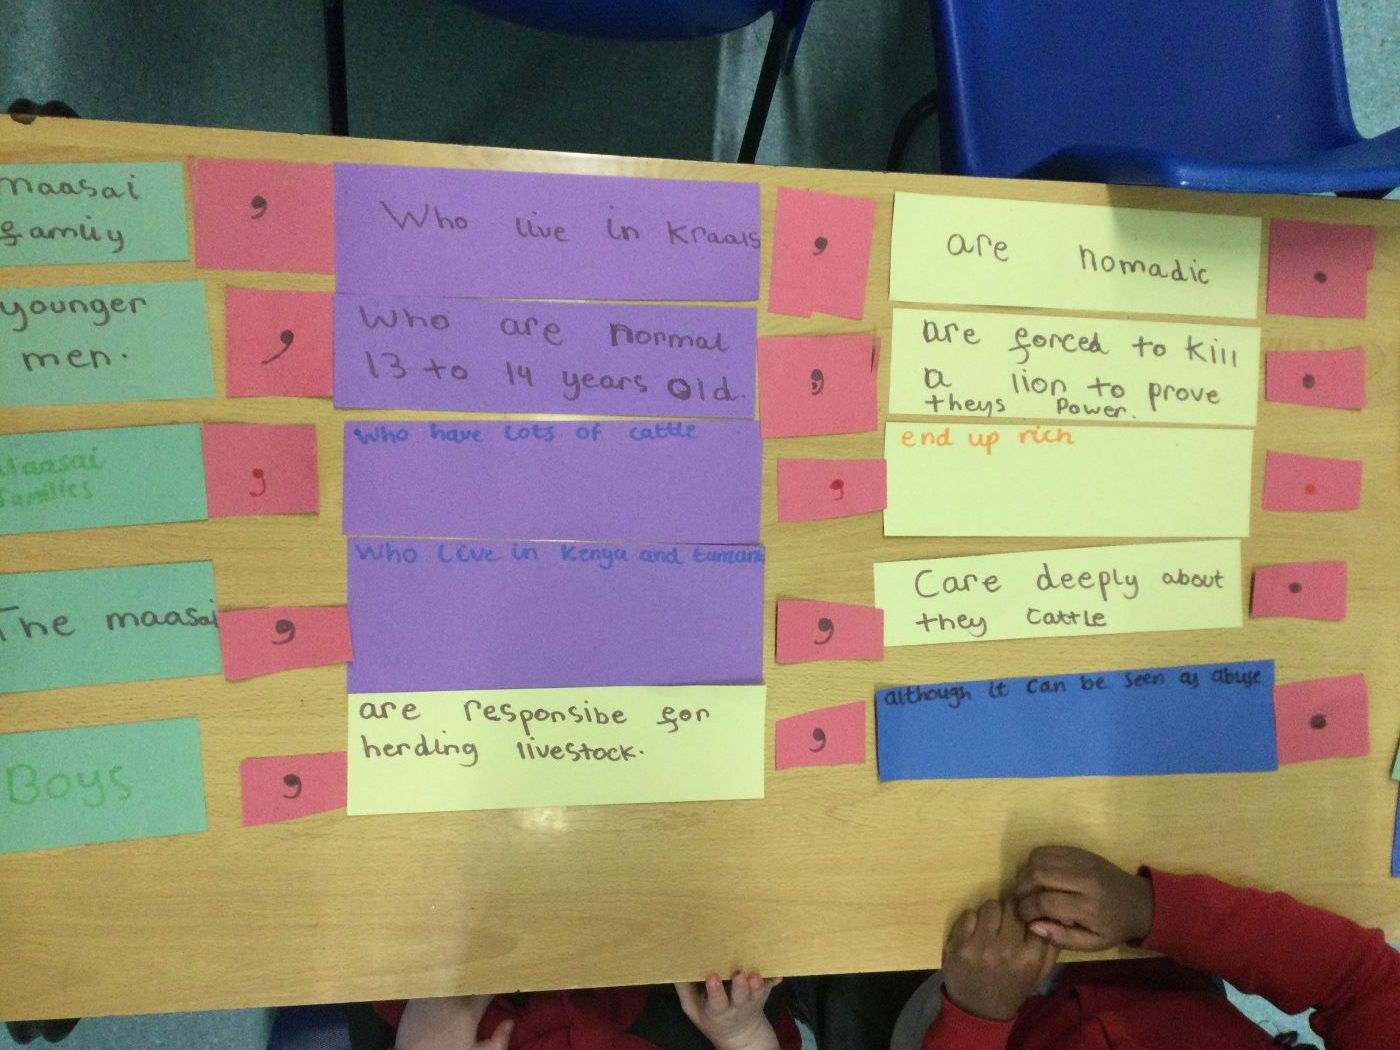 maasai , Who live in Kraals , are nomadic .
famliy
younger , Who are normal , are forced to kill .
men. 13 to 14 years old. a lion to prove
theys Power.
Maasai , Who have lots of cattle , end up rich .
families
The maasai , Who Live in Kenya and tanzan , Care deeply about .
they Cattle
Boys , are responsibe for , although it can be seen as abuse .
herding livestock.